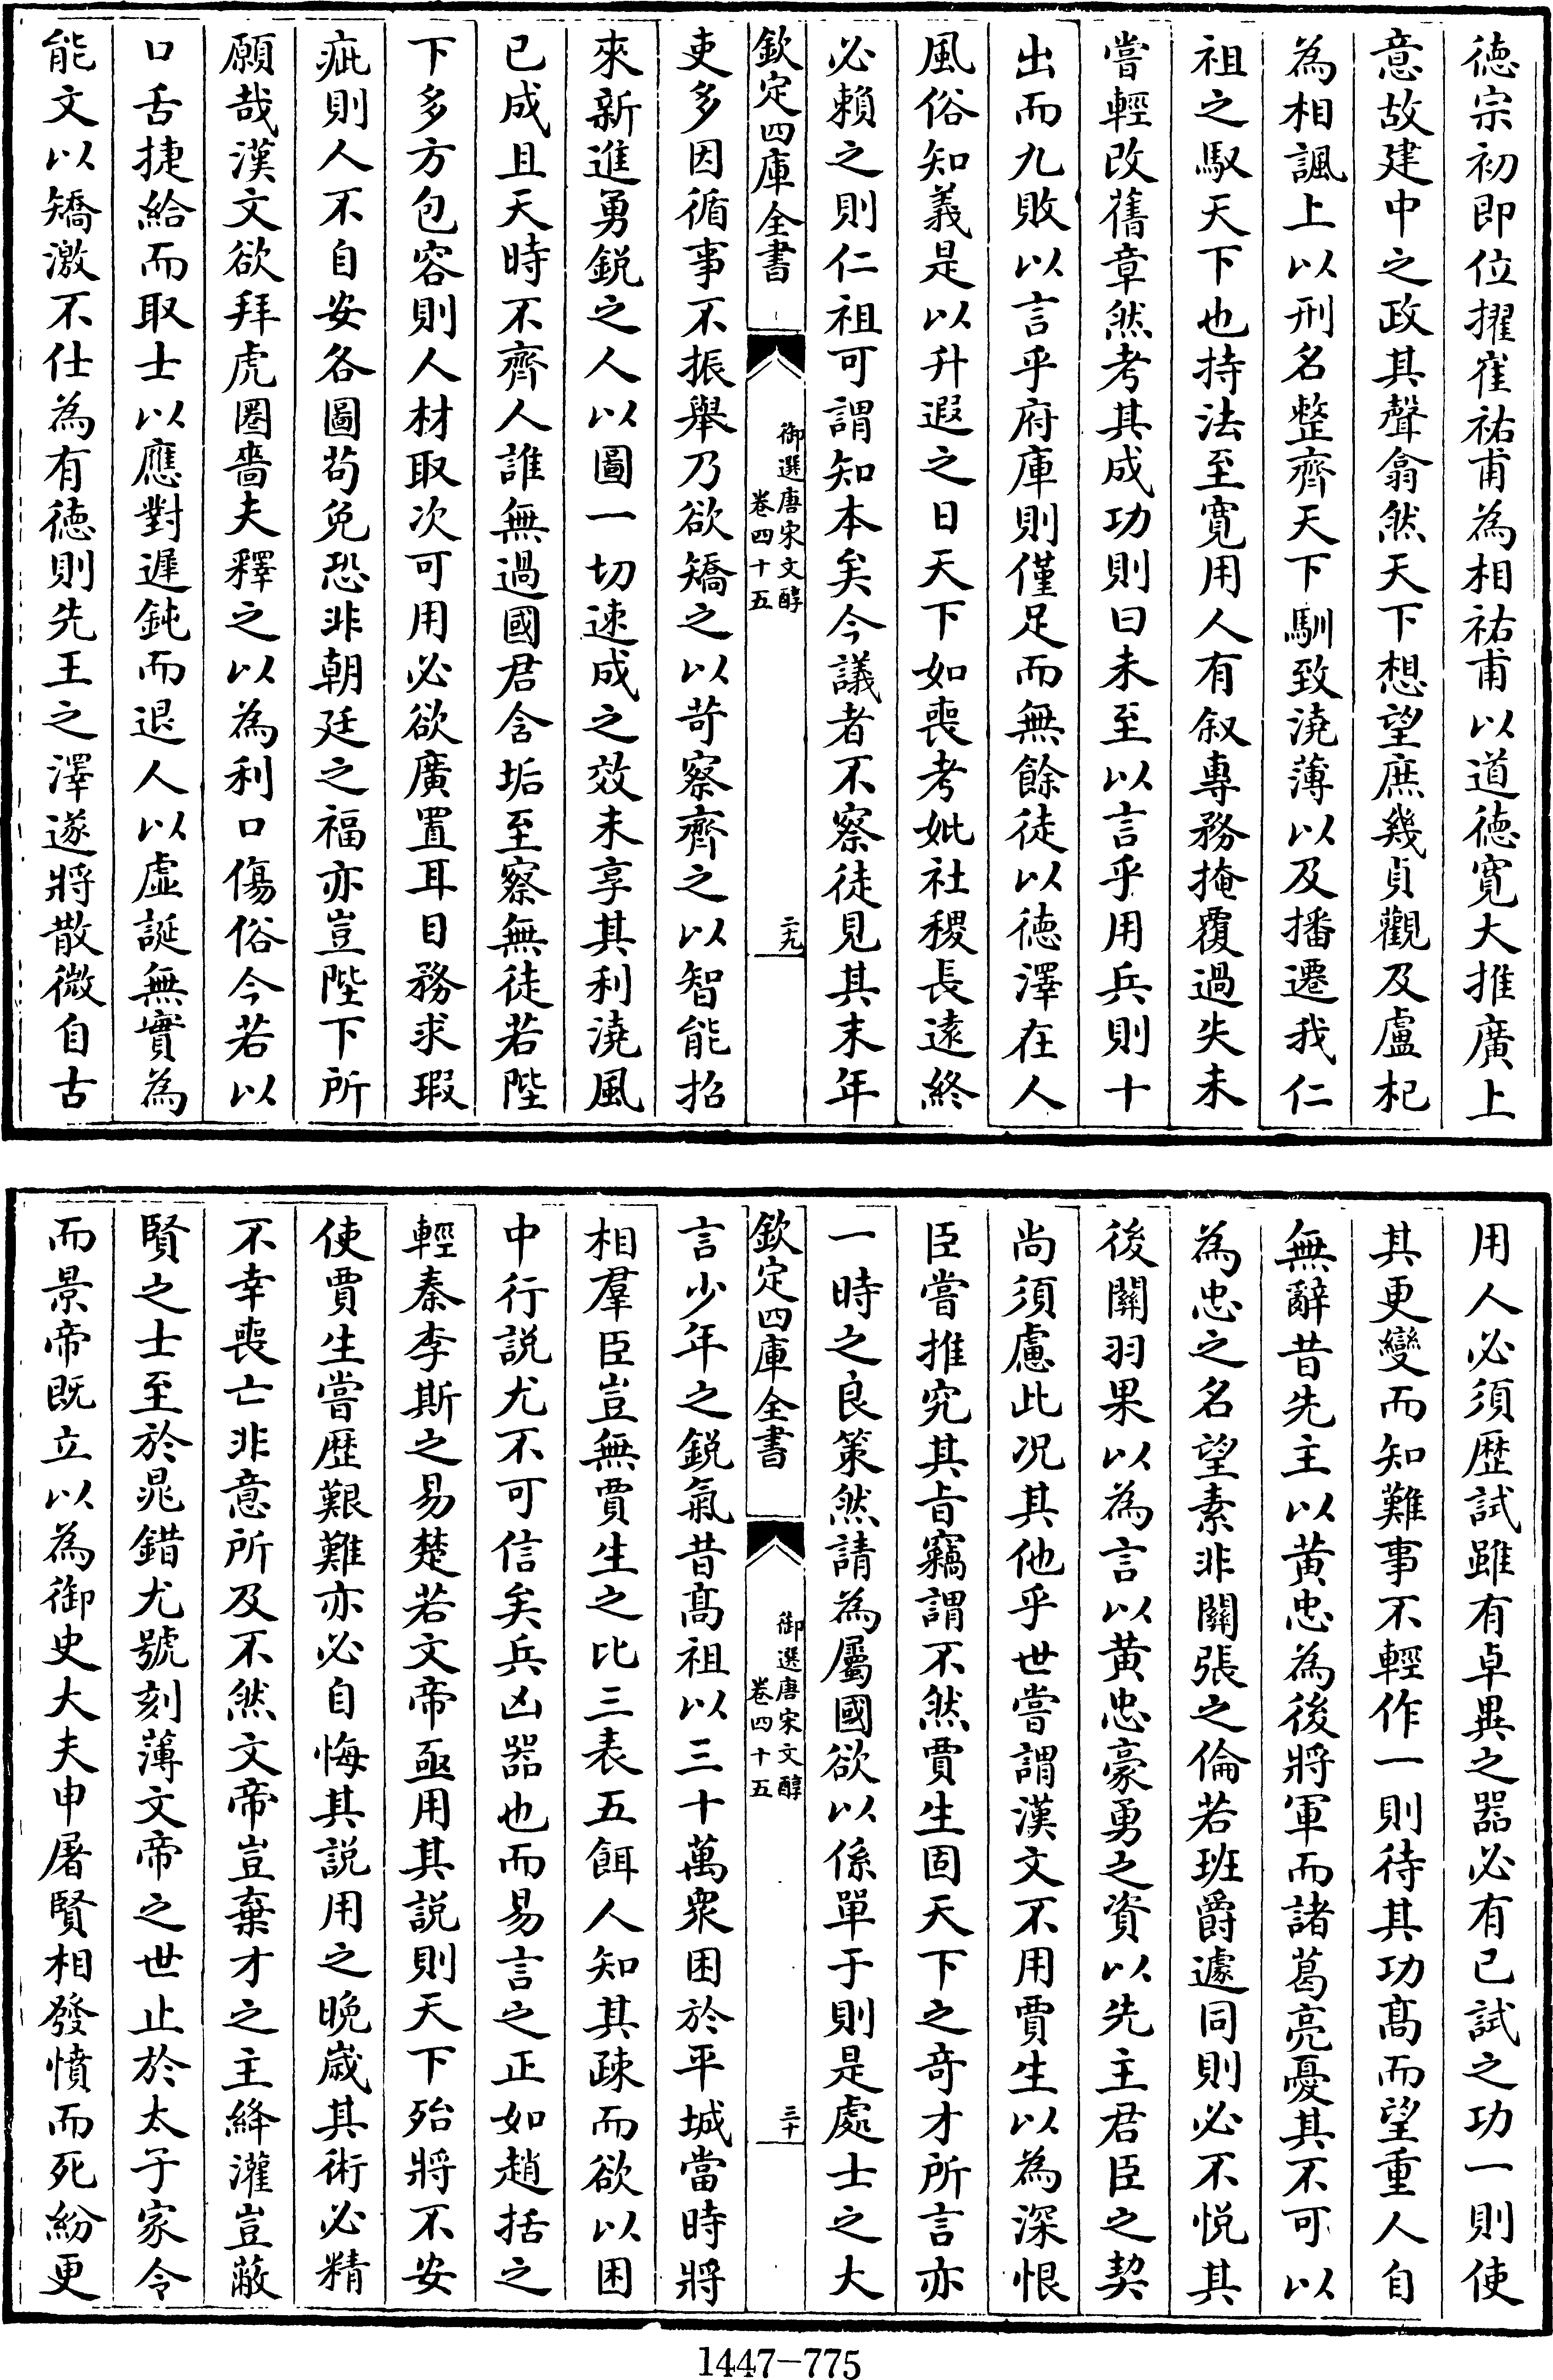 德宗初即位擢崔祐甫為相祐甫以道徳寛大推廣上
意故建中之政其聲翕然天下想望庶幾貞觀及盧杞
為相諷上以刑名整齊天下馴致澆薄以及播遷我仁
祖之馭天下也持法至寛用人有叙專務掩覆過失未
嘗輕改舊章然考其成功則曰未至以言乎用兵則十
出而九敗以言乎府庫則僅足而無餘徒以徳澤在人
風俗知義是以升遐之日天下如喪考妣社稷長遠終
必賴之則仁祖可謂知本矣今議者不察徒見其末年
欽定四庫全書
御選唐宋文醇
卷四十五
二九
吏多因循事不振舉乃欲矯之以苛察齊之以智能招
來新進勇鋭之人以圖一切速成之效未享其利澆風
已成且天時不齊人誰無過國君含垢至察無徒若陛
下多方包容則人材取次可用必欲廣置耳目務求瑕
疵則人不自安各圖苟免恐非朝廷之福亦豈陛下所
願哉漢文欲拜虎圏嗇夫釋之以為利口傷俗今若以
口舌捷給而取士以應對遲鈍而退人以虛誕無實為
能文以矯激不仕為有徳則先王之澤遂將散微自古
用人必須歴試雖有卓異之器必有已試之功一則使
其更變而知難事不輕作一則待其功髙而望重人自
無辭昔先主以黄忠為後將軍而諸葛亮憂其不可以
為忠之名望素非關張之倫若班爵遽同則必不悦其
後關羽果以為言以黄忠豪勇之資以先主君臣之契
尚須慮此况其他乎世嘗謂漢文不用賈生以為深恨
臣嘗推究其旨竊謂不然賈生固天下之奇才所言亦
一時之良策然請為屬國欲以係單于則是處士之大
欽定四庫全書
御選唐宋文醇
卷四十五
三十
言少年之鋭氣昔髙祖以三十萬衆困於平城當時將
相羣臣豈無賈生之比三表五餌人知其疎而欲以困
中行説尤不可信矣兵凶器也而易言之正如趙括之
輕秦李斯之易楚若文帝亟用其説則天下殆將不安
使賈生嘗歴艱難亦必自悔其説用之晩嵗其術必精
不幸喪亡非意所及不然文帝豈棄才之主絳灌豈蔽
賢之士至於鼂錯尤號刻薄文帝之世止於太子家令
而景帝既立以為御史大夫申屠賢相發憤而死紛更
1447-775